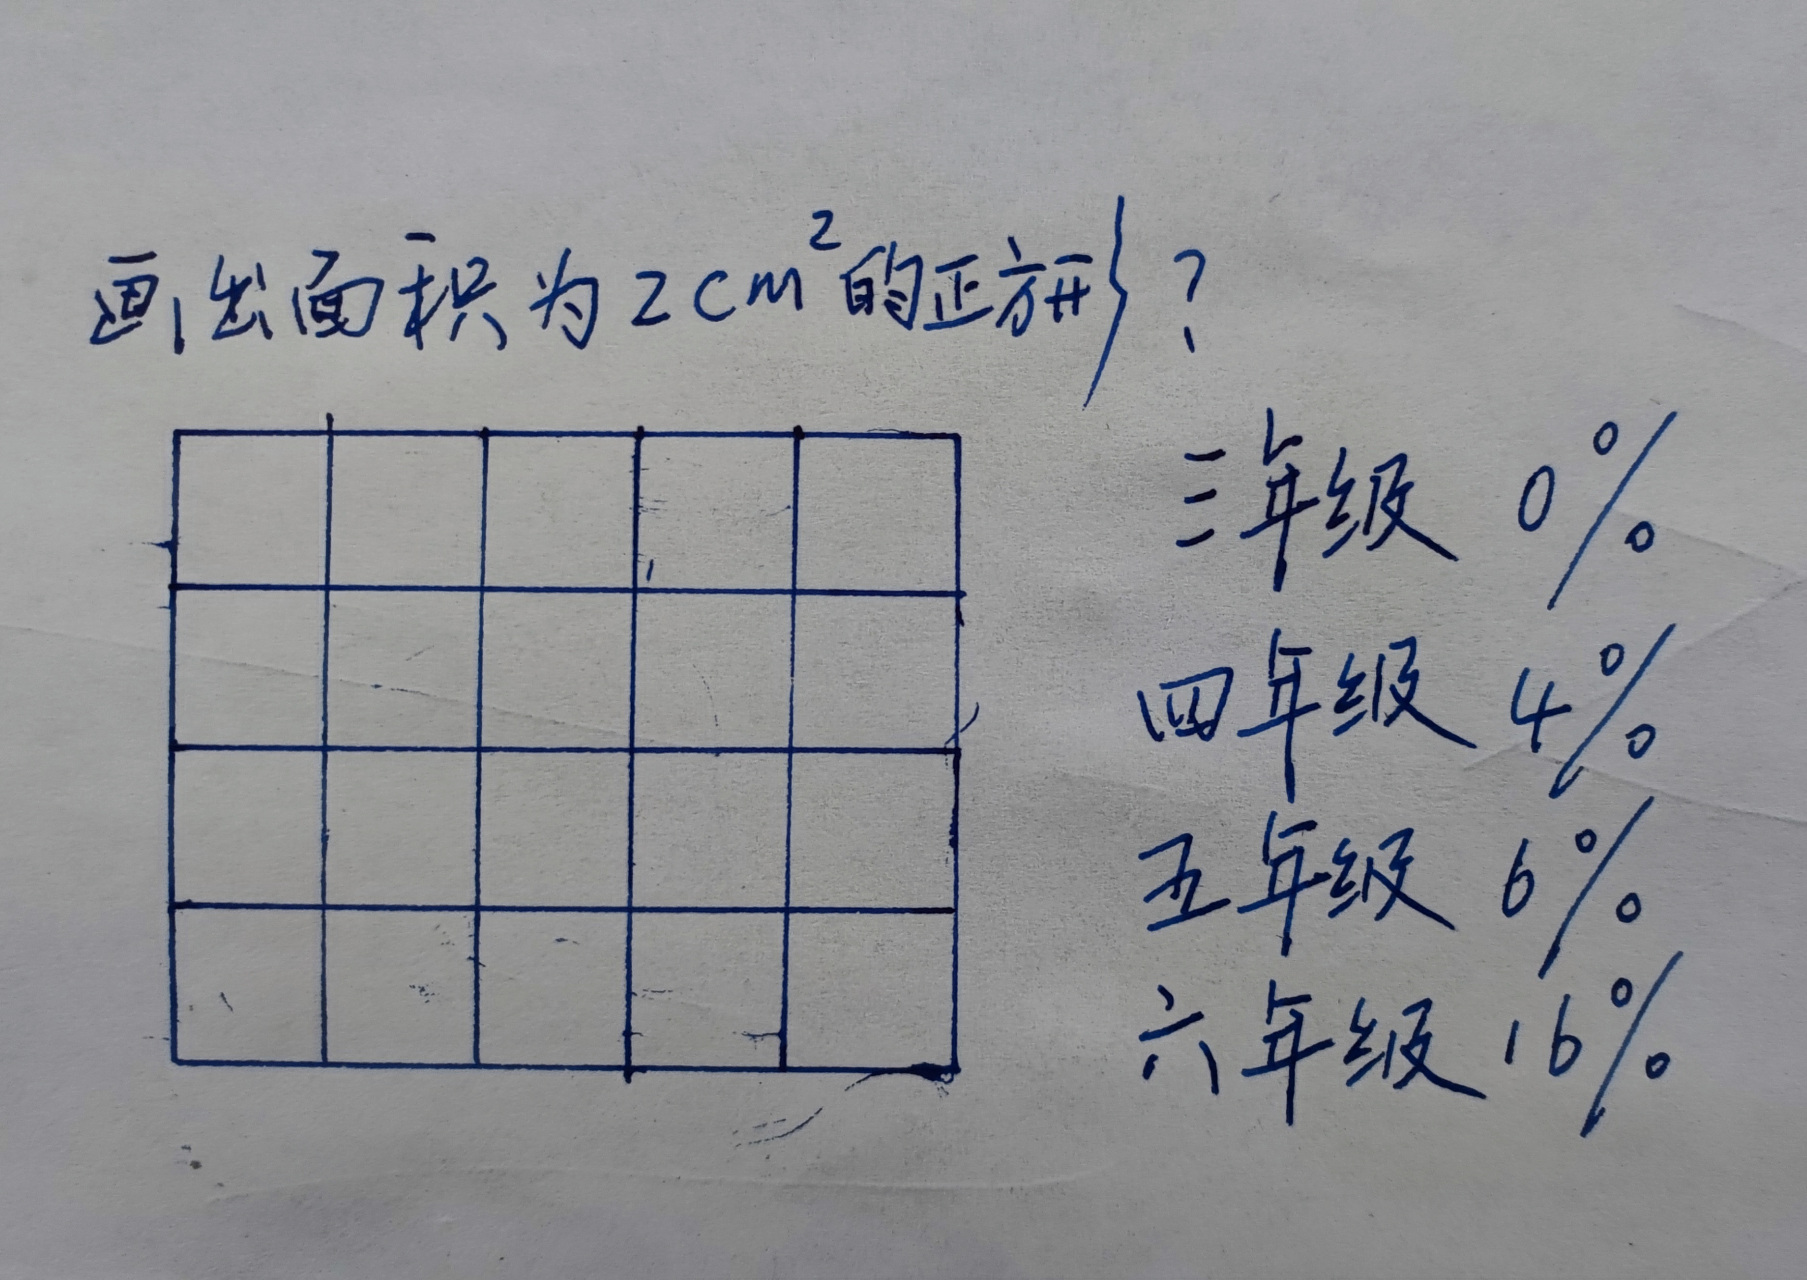 画出面积为2cm²的正方形?
三年级 0%
四年级 4%
五年级 6%
六年级 16%